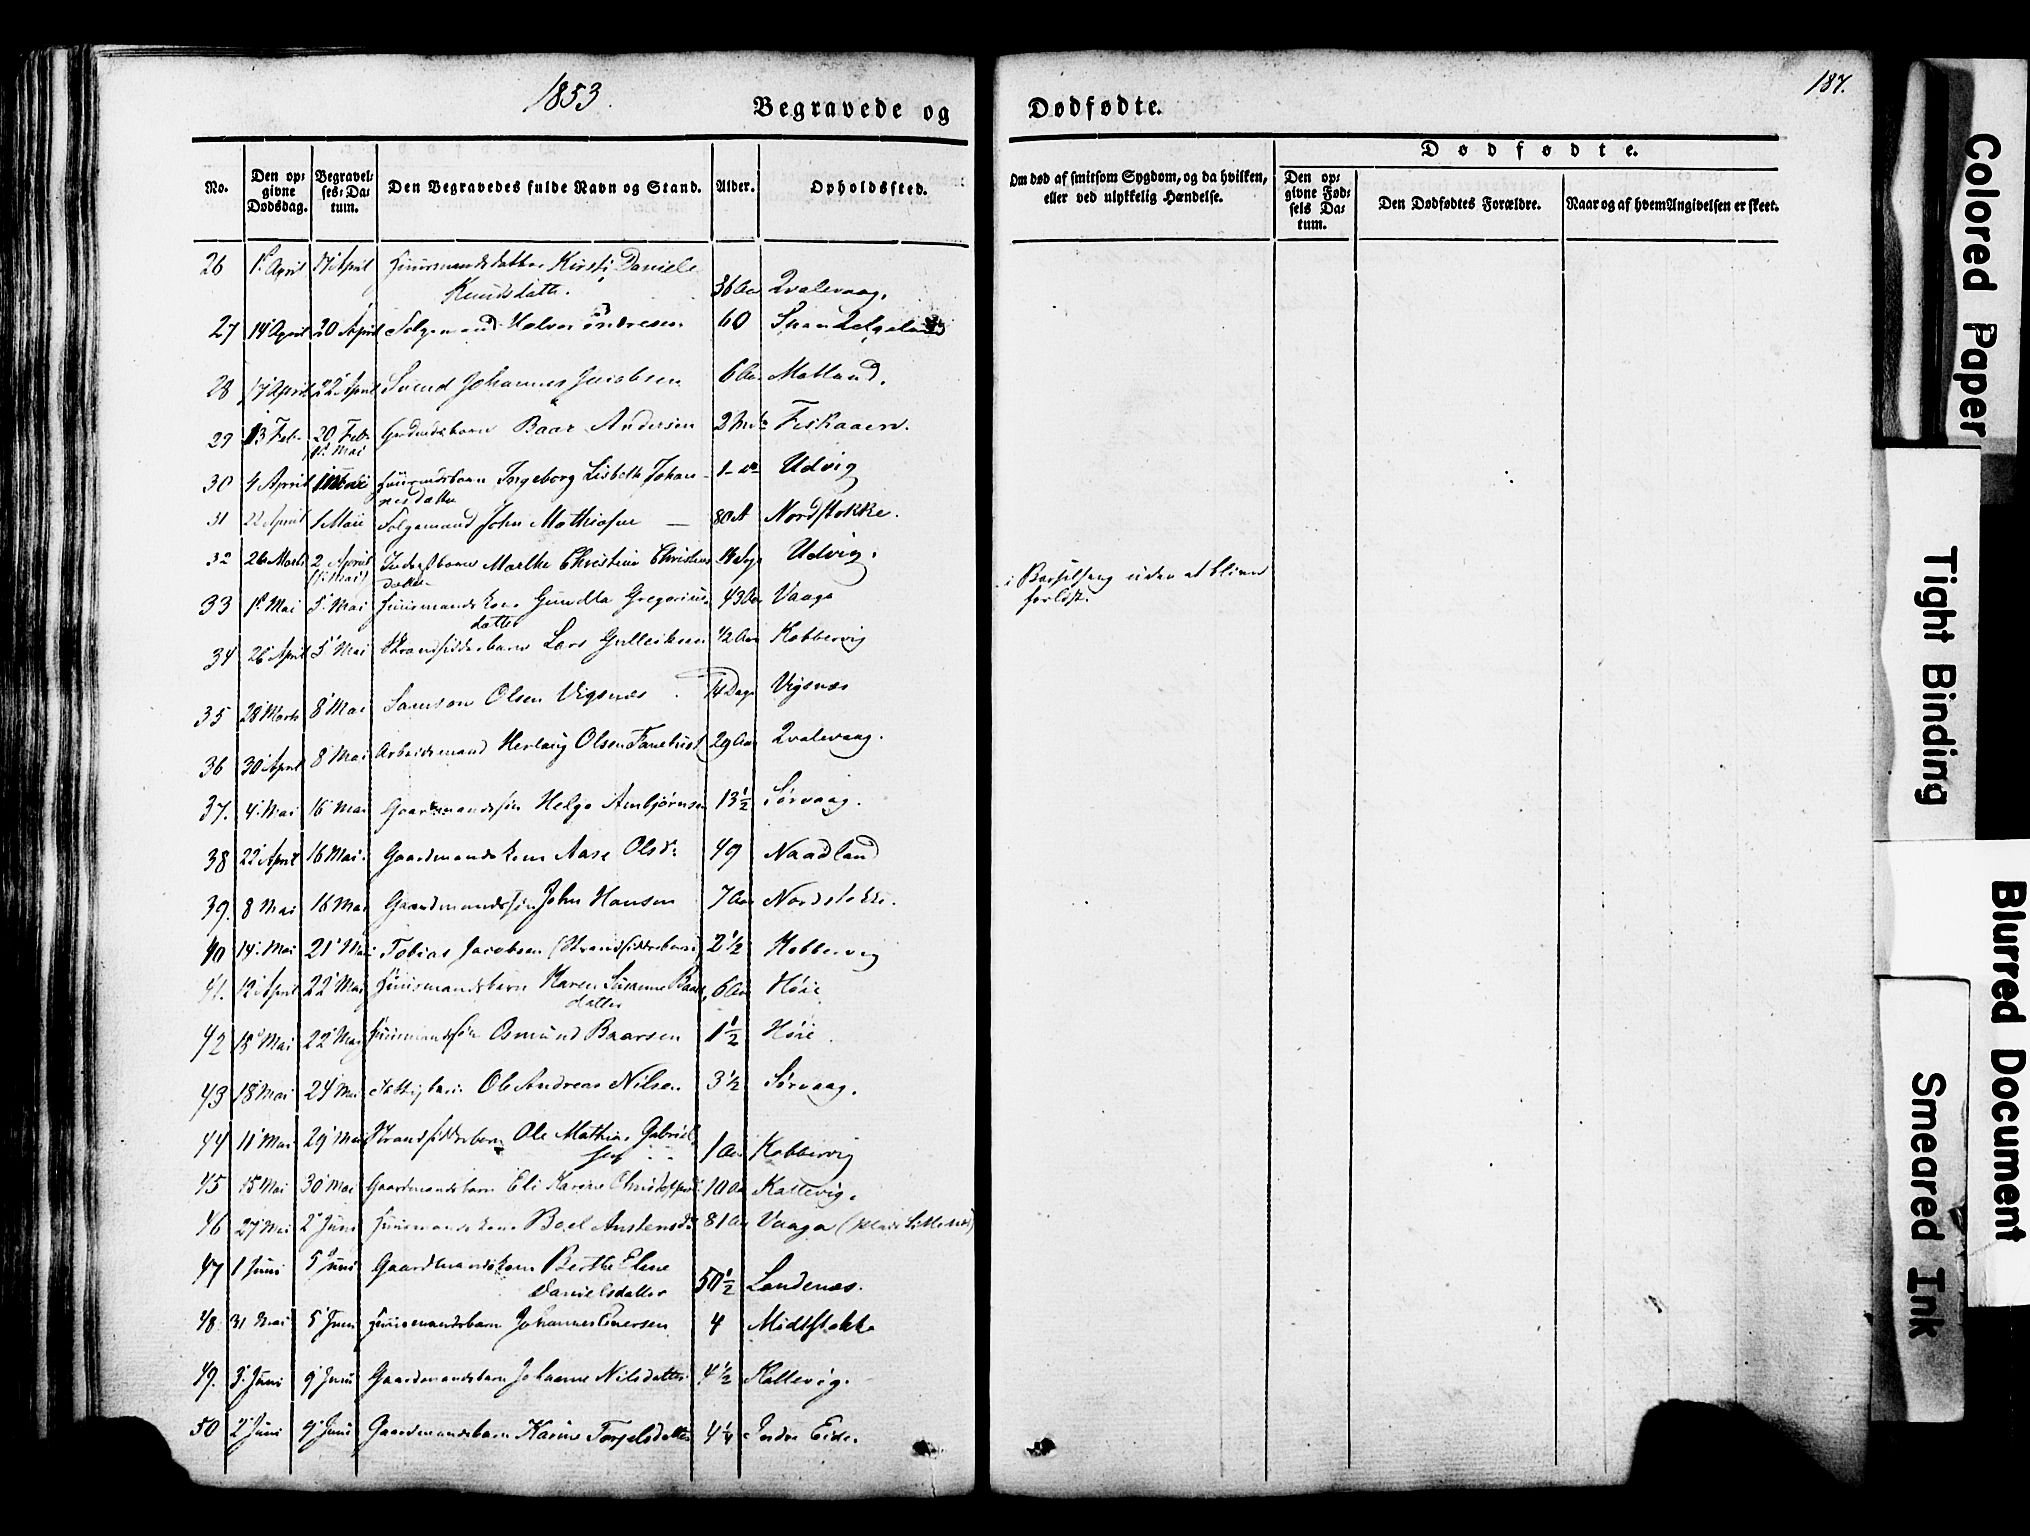 1853.
187.
Begravede og Dødfødte.
No.
Den opgivne Dødsdag.
Begravelses-Datum.
Den Begravedes fulde Navn og Stand.
Alder.
Opholdssted.
Om død af smitsom Sygdom, og da hvilken, eller ved ulykkelig Hændelse.
Dødfødte.
Den opgivne Fødsels Datum.
Den Dødfødtes Forældre.
Naar og af hvem Angivelsen er skeet.
26 1 April 17 April Huusmandsdatter Kirsti Daniele
Knudsdatter. 36 Aar Qvalevaag.
27 14 April 20 April Halvor Andresen 60
28 17 April 22 April Svend Johannes Jacobsen 6 Aar Matland.
29 13 Feb. 20 Feb. Baar Andersen 2 Fiskaaen.
1 Mai
30 4 April Ingeborg Lisbeth Johan-
nesdatter Udvig
31 22 April 1 Mai John Mathiasen — 80 A Nordstokke.
32 26 Marts 2 April Marthe Christine Christens
(1 Mai) datter Udvig.
33 1 Mai 5 Mai Huusmandskone Gundla Gregorius
datter 43 Aar Vaage i Barselseng uden at blive
forløst.
34 26 April 5 Mai Strandsidderbarn Lars Gulleiksen 1/2 Aar Kobbervig
35 28 Marts 8 Mai Samson Olsen Vigsnæs 14 Dage Vigsnæs
36 30 April 8 Mai Arbeidsmand Herlaug Olsen 29 Aar Qvalevaag.
37. 4 Mai 16 Mai Gaardmandssøn Helge Ambjørnsen 13 1/2 Sørvaag.
38 22 April 16 Mai Gaardmandskone Aase Olsd: 49 Naadland
39. 8 Mai 16 Mai Gaardmandssøn John Hansen 7 Aar Nordstokke.
40 14 Mai 21 Mai Tobias Jacobsen (Strandsidderbarn) 2 1/2 Kobbervig
41. 12 April 22 Mai Huusmandsbarn Karen Susanne Baars
datter 6 Aar Høie
42 15 Mai 22 Mai Huusmandssøn Osmund Baarsen 1 1/2 Høie.
43 18 Mai 24 Mai Ole Andreas Nilsen 3 1/2 Sørvaag.
44 11 Mai 29 Mai Strandsidderbarn Ole Mathias Gabriel
sen 1 Aar Kobbervig
45 15 Mai 30 Mai Gaardmandsbarn Eli Karine 10 Kallevig.
46 27 Mai 2 Juni Huusmandskone Boel Anstensd: 81 Aar Vaage
47 1 Juni 5 Juni Gaardmandskone Berthe Elene
Danielsdatter 50 1/2 Landenæs.
48 31 Mai 5 Juni Huusmandsbarn Johannes 4 Midtstokke
49. 3 Juni 9 Juni Gaardmandsbarn Johanne Nilsdatter 4 1/2 Kallevig.
50 2 Juni 9 Juni Gaardmandsbarn Karine Torgelsdatter 4 1/4 Indre Eide.
Colored Paper
Tight Binding
Blurred Document
Smeared Ink